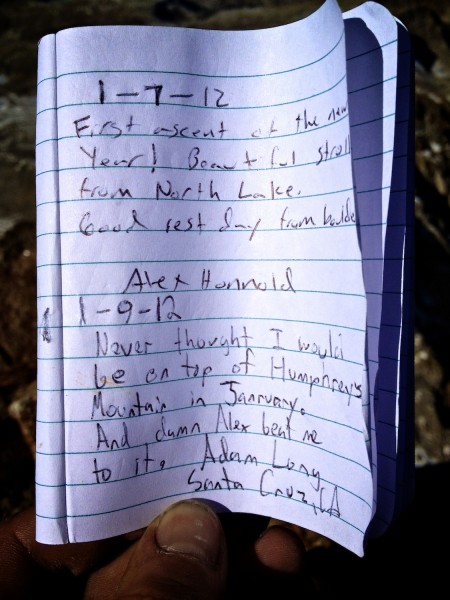 1-7-12
First ascent of the new
Year! Beautiful stroll
from North Lake.
Good rest day from boulde
Alex Honnold
1-9-12
Never thought I would
be on top of Humphreys
Mountain in Janruary.
And damn Alex beat me
to it. Adam Long
Santa Cruz, CA